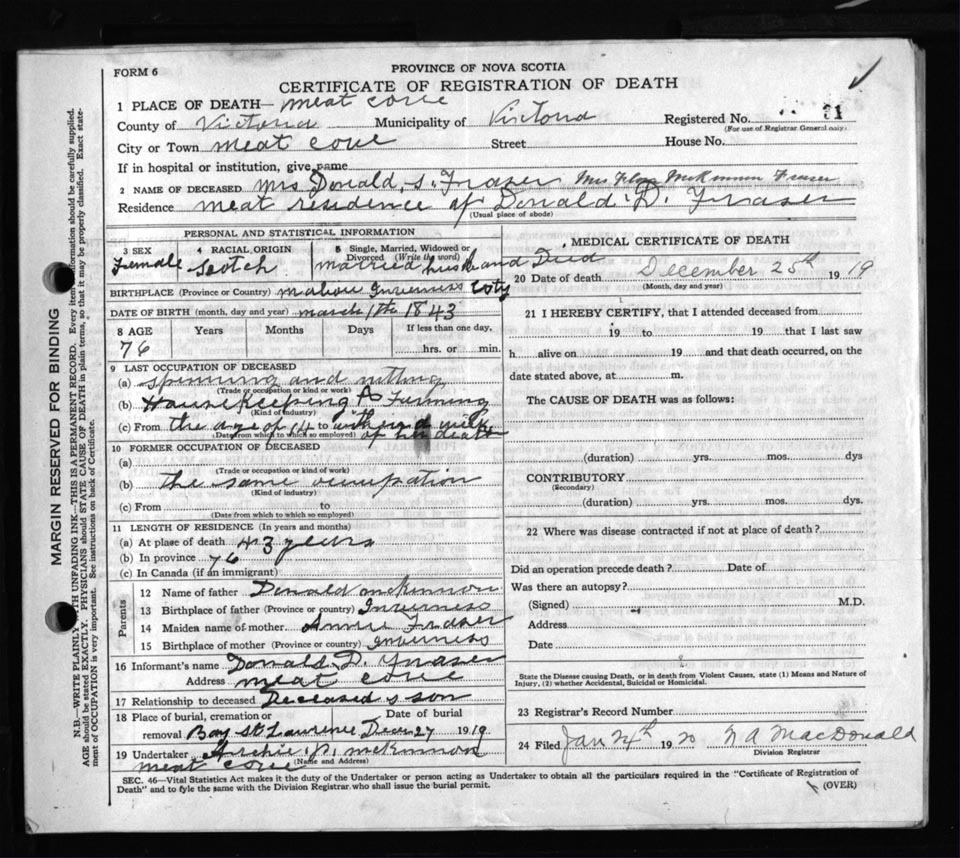 PROVINCE OF NOVA SCOTIA
FORM 6
CERTIFICATE OF REGISTRATION OF DEATH
1 PLACE OF DEATH— meat cove
County of Victoria Municipality of Victoria Registered No. 31
(For use of Registrar General only)
City or Town meat cove Street House No.
If in hospital or institution, give name
2 NAME OF DECEASED Mrs Donald S. Fraser Mrs Flora McKinnon Fraser
Residence meat residence of Donald D. Fraser
(Usual place of abode)
PERSONAL AND STATISTICAL INFORMATION
3 SEX 4 RACIAL ORIGIN 5 Single, Married, Widowed or Divorced (Write the word)
Female scotch married husband Died
BIRTHPLACE (Province or Country) mabou Inverness Coty
DATE OF BIRTH (month, day and year) march 1th 1843
8 AGE Years Months Days If less than one day,
76 hrs. or min.
9 LAST OCCUPATION OF DECEASED
(a) spinning and nitting
(Trade or occupation or kind of work)
(b) Housekeeping & Farming
(Kind of industry)
(c) From the age of 14 to within a week of her death
(Date from which to which so employed)
10 FORMER OCCUPATION OF DECEASED
(a)
(Trade or occupation or kind of work)
(b) the same occupation
(Kind of industry)
(c) From to
(Date from which to which so employed)
11 LENGTH OF RESIDENCE (In years and months)
(a) At place of death 43 years
(b) In province 76
(c) In Canada (if an immigrant)
Parents
12 Name of father Donald mckinnon
13 Birthplace of father (Province or country) Inverness
14 Maiden name of mother Annie Fraser
15 Birthplace of mother (Province or country) Inverness
16 Informant's name Donald D. Fraser
Address meat cove
17 Relationship to deceased Deceased s son
18 Place of burial, cremation or removal Date of burial
Bay St Lawrence Decem 27 1919
19 Undertaker Archie D. mckinnon
(Name and Address)
meat cove
MEDICAL CERTIFICATE OF DEATH
20 Date of death December 25th 1919
(Month, day and year)
21 I HEREBY CERTIFY, that I attended deceased from
19 to 19 that I last saw
h alive on 19 and that death occurred, on the
date stated above, at m.
The CAUSE OF DEATH was as follows:
(duration) yrs. mos. dys
CONTRIBUTORY
(Secondary)
(duration) yrs. mos. dys.
22 Where was disease contracted if not at place of death?
Did an operation precede death? Date of
Was there an autopsy?
(Signed) M.D.
Address
Date
State the Disease causing Death, or in death from Violent Causes, state (1) Means and Nature
of Injury, (2) whether Accidental, Suicidal or Homicidal.
23 Registrar's Record Number
24 Filed Jan 24th 1920 MacDonald
Division Registrar
SEC. 46—Vital Statistics Act makes it the duty of the Undertaker or person acting as Undertaker to obtain all the particulars required in the "Certificate of Registration of
Death" and to fyle the same with the Division Registrar who shall issue the burial permit.
(OVER)
MARGIN RESERVED FOR BINDING
N.B.—WRITE PLAINLY WITH UNFADING INK—THIS IS A PERMANENT RECORD. Every item of information should be carefully supplied.
AGE should be stated EXACTLY. PHYSICIANS should STATE CAUSE OF DEATH in plain terms, so that it may be properly classified. Exact state-
ment of OCCUPATION is very important. See instructions on back of Certificate.